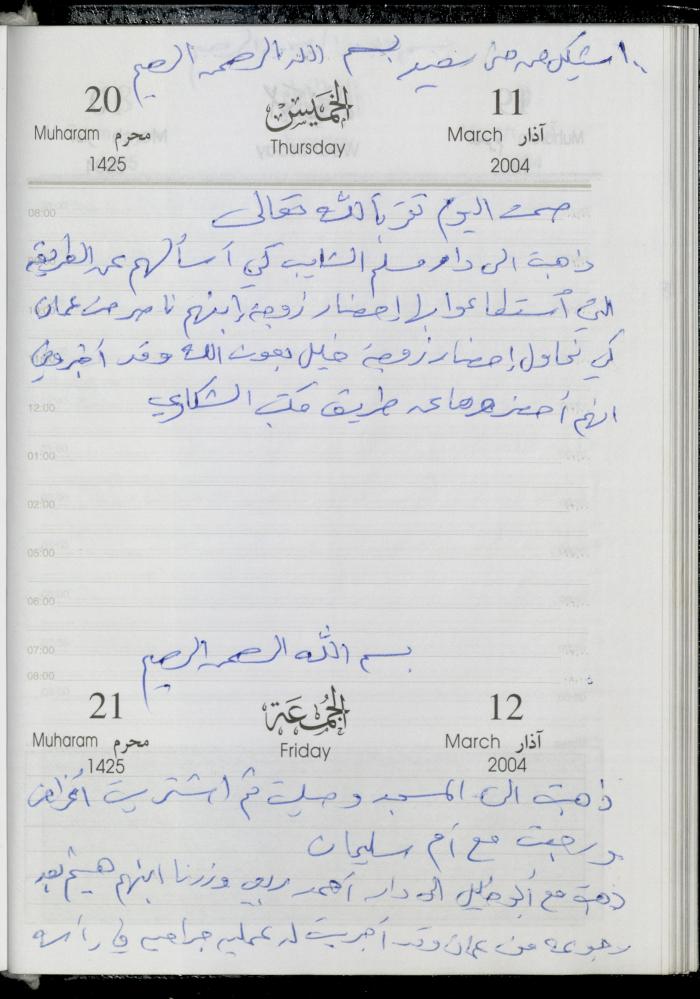 بسم الله الرحمن الرحيم
20 الخميس 11
Muharam محرم Thursday March آذار
1425 2004
08:00
صمت اليوم تقربا لله تعالى
ذهبت الى دار مسلم الشايب كي أسألهم عن الطريقة
التي أستطاعوا بها إحضار زوجة إبنهم ناصر من عمان
كي نحاول إحضار زوجة خليل بعون الله وقد أخبروني
12:00
انهم أحضروها عن طريق مكتب الشكاوي
01:00
02:00
05:00
06:00
07:00
بسم الله الرحمن الرحيم
08:00
21 الجمعة 12
Muharam محرم Friday March آذار
1425 2004
ذهبت الى المسجد وصليت ثم اشتريت أغراض
ورجعت مع أم سليمان
ذهبت مع أبو خليل الى دار أحمد ربيع وزرنا ابنهم هيثم بعد
رجوعه من عمان وقد أجريت له عمليه جراحيه في رأسه